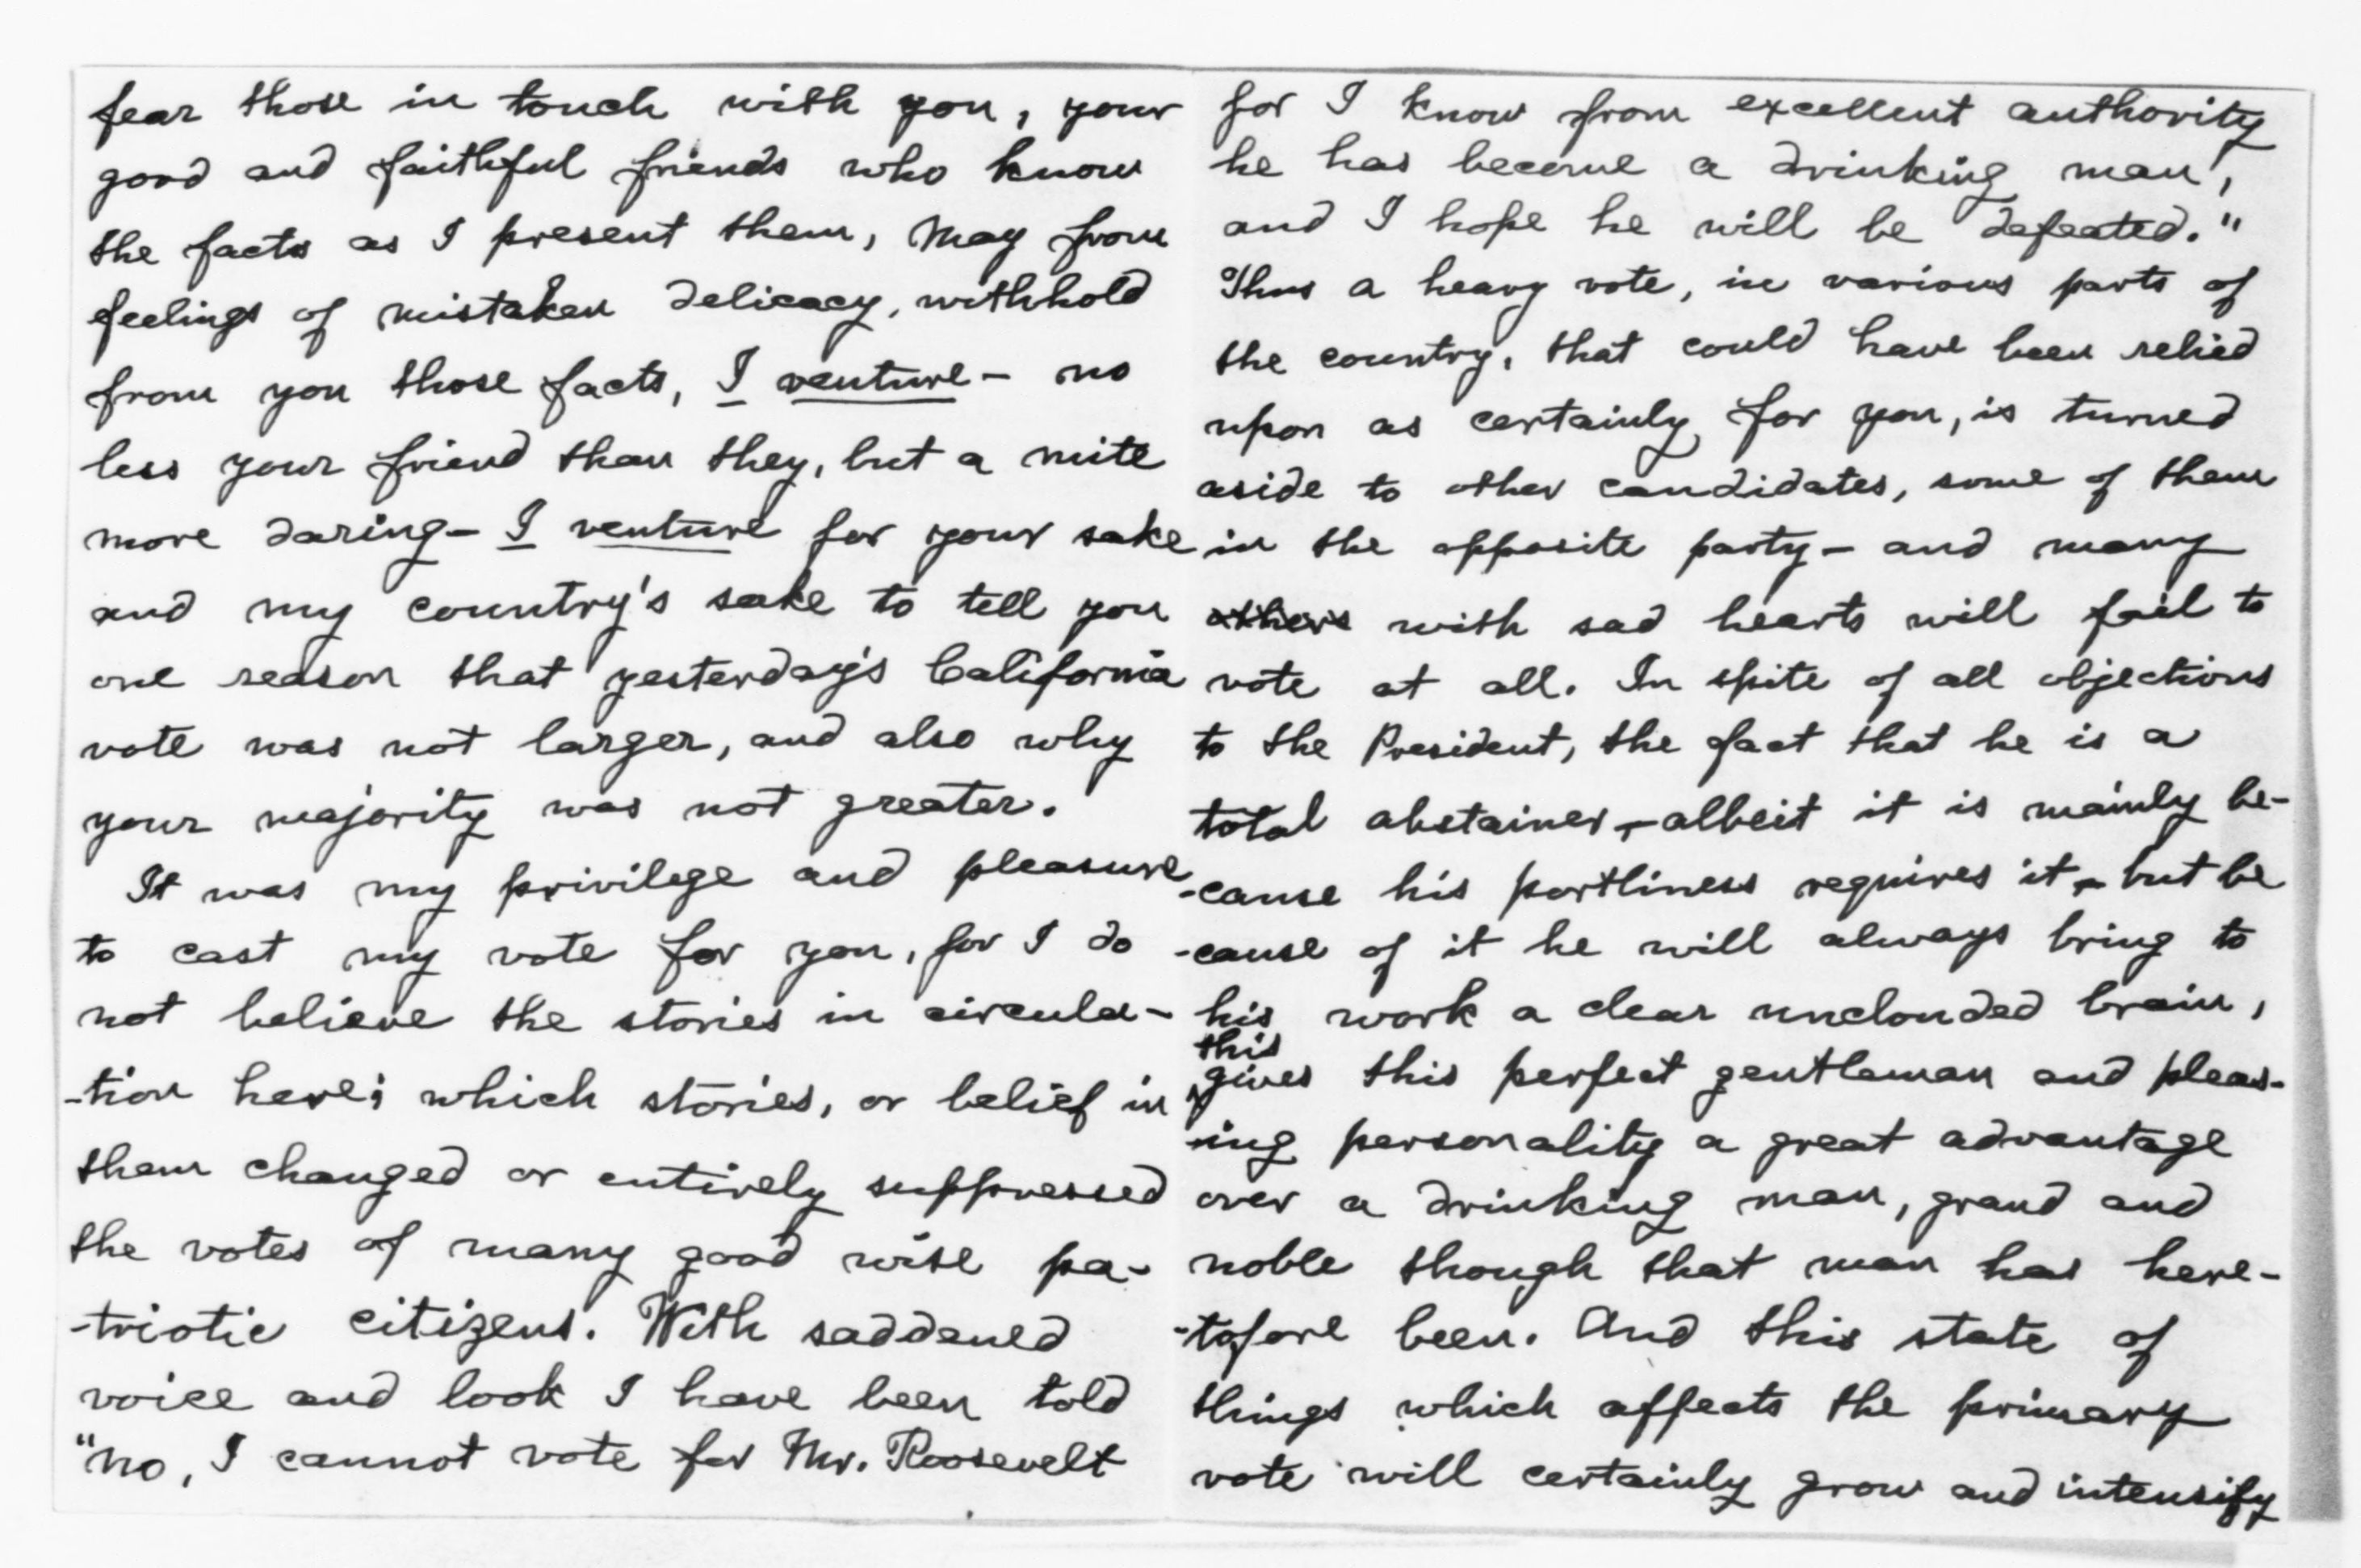 fear those in touch with you, your
good and faithful friends who know
the facts as I present them, may from
feelings of mistaken delicacy, withhold
from you those facts, I venture - no
less your friend than they, but a mite
more daring - I venture for your sake
and my country's sake to tell you
one reason that yesterday's California
vote was not larger, and also why
your majority was not greater.
It was my privilege and pleasure
to cast my vote for you, for I do
not believe the stories in circula-
-tion here; which stories, or belief in
them changed or entirely suppressed
the votes of many good wise pa-
-triotic citizens. With saddened
voice and look I have been told
"no, I cannot vote for Mr. Roosevelt
for I know from excellent authority
he has become a drinking man,
and I hope he will be defeated."
Thus a heavy vote, in various parts of
the country, that could have been relied
upon as certainly for you, is turned
aside to other candidates, some of them
in the opposite party - and many
others with sad hearts will fail to
vote at all. In spite of all objections
to the President, the fact that he is a
total abstainer, - albeit it is mainly be-
-cause his portliness requires it, - but be
-cause of it he will always bring to
his work a clear unclouded brain,
this
gives this perfect gentleman and pleas-
-ing personality a great advantage
over a drinking man, grand and
noble though that man has here-
-tofore been. And this state of
things which affects the primary
vote will certainly grow and intensify